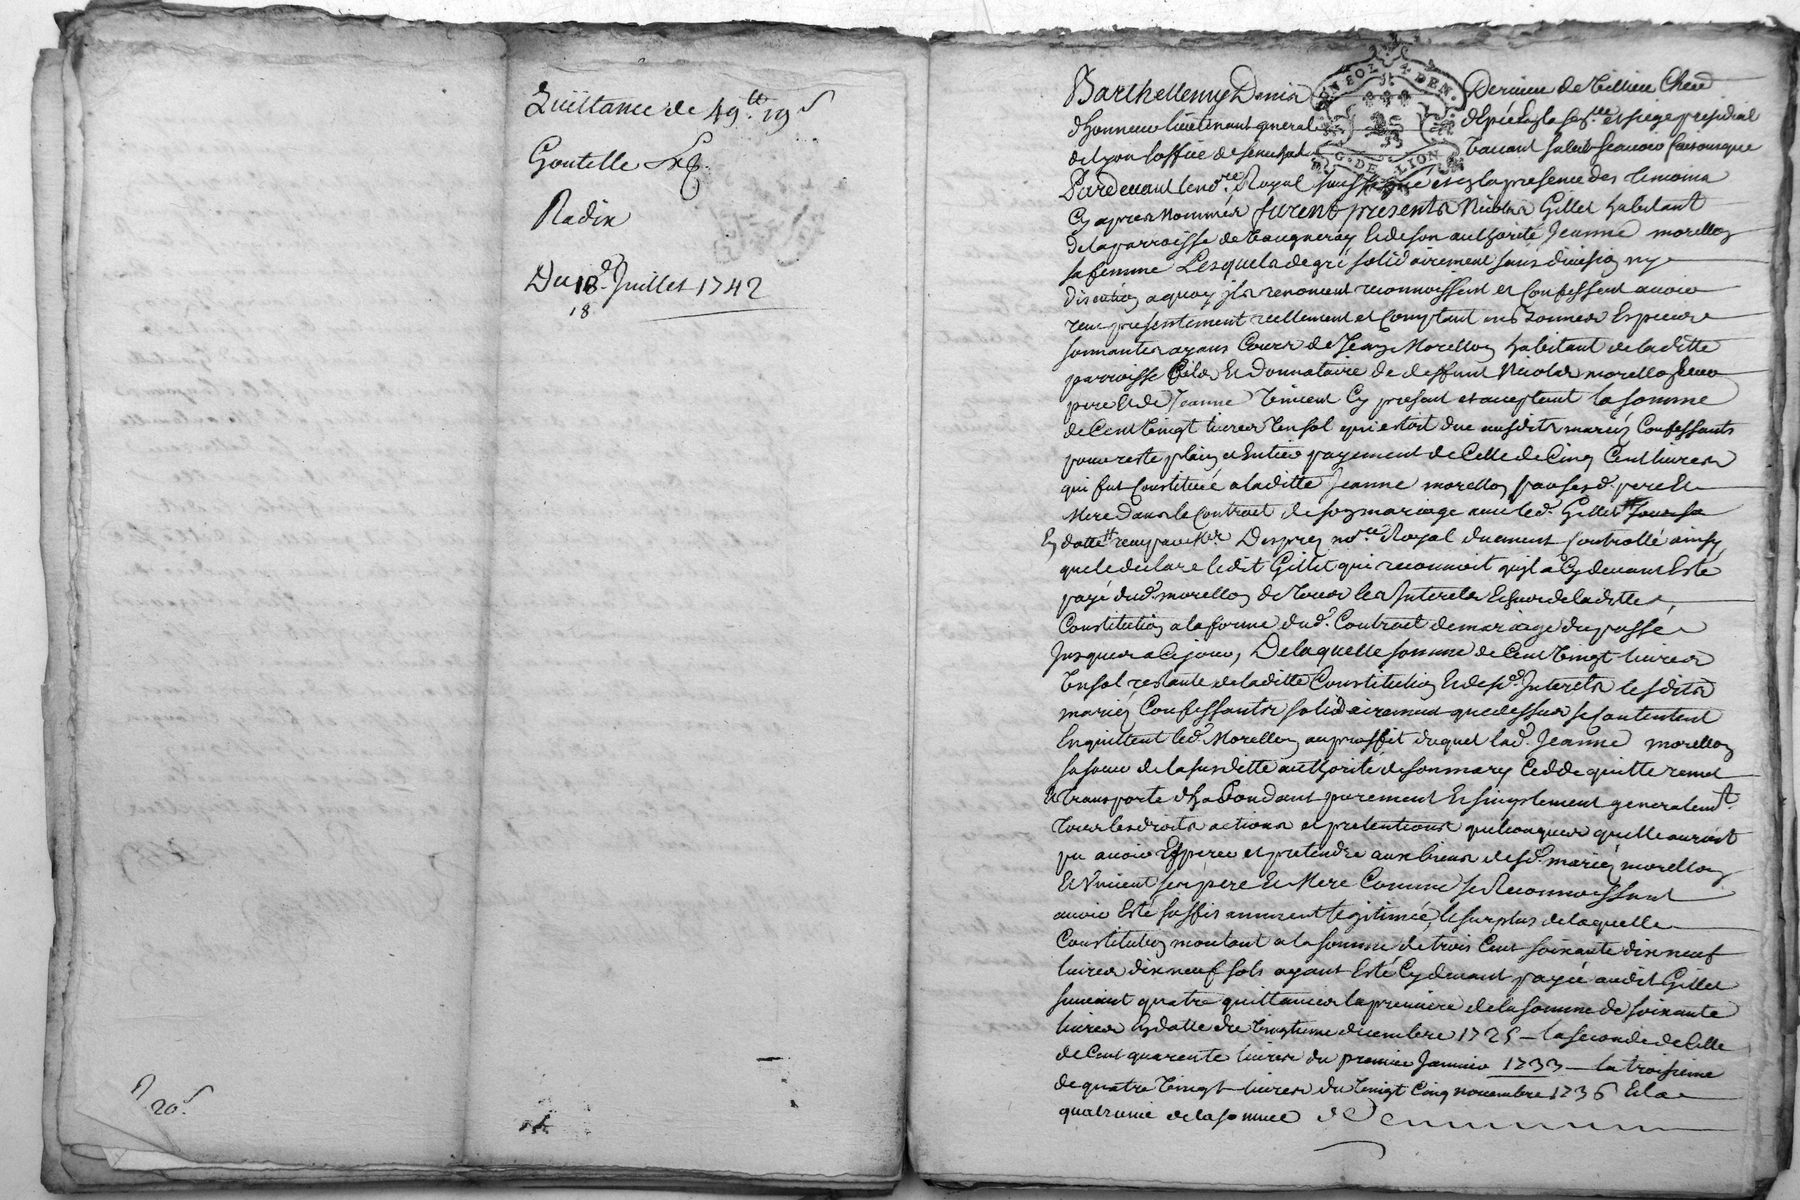 Quittance de 49lt 19s
Goutelle
Radix
Du 18e Juillet 1742
18
20s
UN SOL 4 DEN.
G. DE LION
Barthellemy Denis Dervieu de Villieu Cher
dhonneur lieutenant general despée en la sesée et siege presidial
de Lyon loffice de senechal vaccant salut scavoir faisons que
Pardevant le nore Royal soussigné et en la presence des temoins
Cy apres Nommés furent presents Nicolas Gillet habitant
de la parroisse de Vaugneray et de son authorité Jeanne morellon
sa femme Lesquels de gré solidairement sans division ny
discution a quoy ils renoncent reconnoissent et Confessent avoir
receu presentement reellement et Comptant en bonnes Especes
sonnantes ayans Cours de Jean Morellon habitant de laditte
parroisse fils et donnataire de deffunt Nicolas morellon
pere et de Jeanne Vincent Cy present et acceptant la somme
de Cent vingt livres un sol qui estoit due ausdits mariés Confessants
pour reste plain et Entier payement de Celle de Cinq Cent livres
qui fut Constituée a laditte Jeanne morellon par sesd. pere et
Mere dans le Contract de son mariage avec led. Gillet
En datte receu par Me Desprez nore Royal duement Controllé ainsy
que le declare ledit Gillet qui reconnoit qu'il a Cy devant Esté
payé dud. morellon de tous les Interets Echus de laditte
Constitution a la forme dud. Contract de mariage du passé
Jusques a Ce jour, De laquelle somme de Cent vingt livres
un sol restante de laditte Constitution et desd. Interets lesdits
mariés Confessants solidairement que dessus se Contentent
En quittent led. Morellon au proffit duquel lad. Jeanne morellon
sa soeur de la susditte authorité de son mary Cedde quitte remet
et transporte purement et simplement generalemt
tous les droits actions et pretentions quelconques quelle auroit
pu avoir Esperer et pretendre aux biens desd. mariés morellon
et Vincent ses pere et Mere Comme se Reconnoissant
avoir Esté suffisamment legitimée, le surplus de laquelle
Constitution montant a la somme de trois Cent soixante dix neuf
livres dix neuf sols ayant Esté Cy devant payée audit Gillet
suivant quatre quittances la premiere de la somme de soixante
livres En datte du vingtieme decembre 1725 la seconde de Celle
de Cent quarente livres du premier Janvier 1733 la troisieme
de quatre vingt livres du vingt Cinq novembre 1736 et la
quatrieme de la somme de